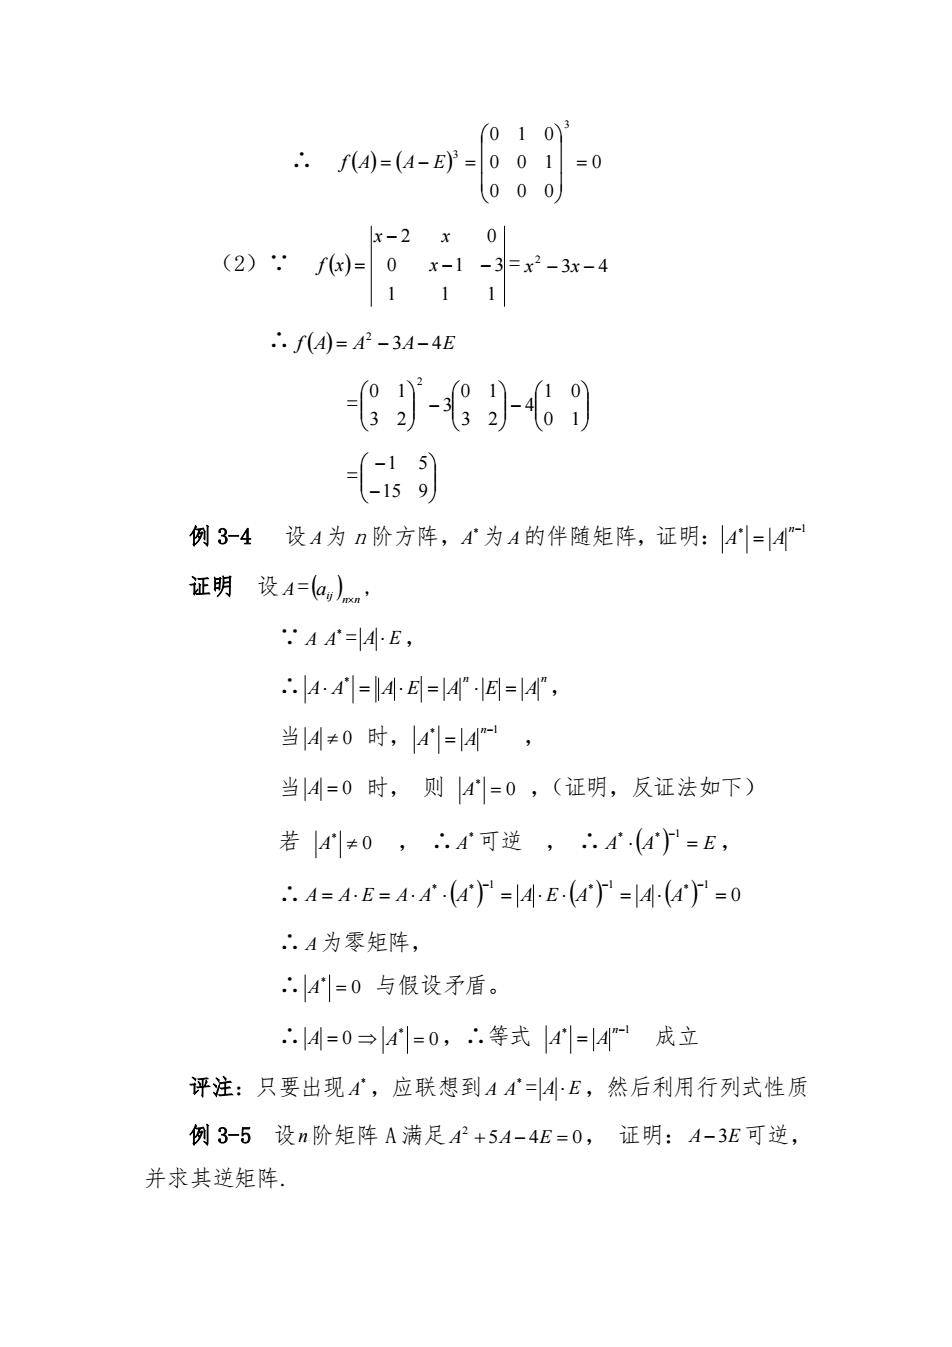 ∴ f(A)=(A−E)³=(0 1 0; 0 0 1; 0 0 0)³=0
（2）∵ f(x)=|x−2 x 0; 0 x−1 −3; 1 1 1|=x²−3x−4
∴f(A)=A²−3A−4E
=(0 1; 3 2)²−3(0 1; 3 2)−4(1 0; 0 1)
=(−1 5; −15 9)
例 3-4 设A为 n 阶方阵，A*为A的伴随矩阵，证明：|A*|=|A|ⁿ⁻¹
证明 设A=(aᵢⱼ)ₙ×ₙ，
∵A A*=|A|·E，
∴|A·A*|=||A|·E|=|A|ⁿ·|E|=|A|ⁿ，
当|A|≠0 时，|A*|=|A|ⁿ⁻¹ ，
当|A|=0 时， 则 |A*|=0 ，（证明，反证法如下）
若 |A*|≠0 ，∴A*可逆 ，∴A*·(A*)⁻¹=E，
∴A=A·E=A·A*·(A*)⁻¹=|A|·E·(A*)⁻¹=|A|·(A*)⁻¹=0
∴A为零矩阵，
∴|A*|=0 与假设矛盾。
∴|A|=0⇒|A*|=0，∴等式 |A*|=|A|ⁿ⁻¹ 成立
评注：只要出现A*，应联想到A A*=|A|·E，然后利用行列式性质
例 3-5 设n阶矩阵 A 满足A²+5A−4E=0， 证明：A−3E可逆，
并求其逆矩阵.